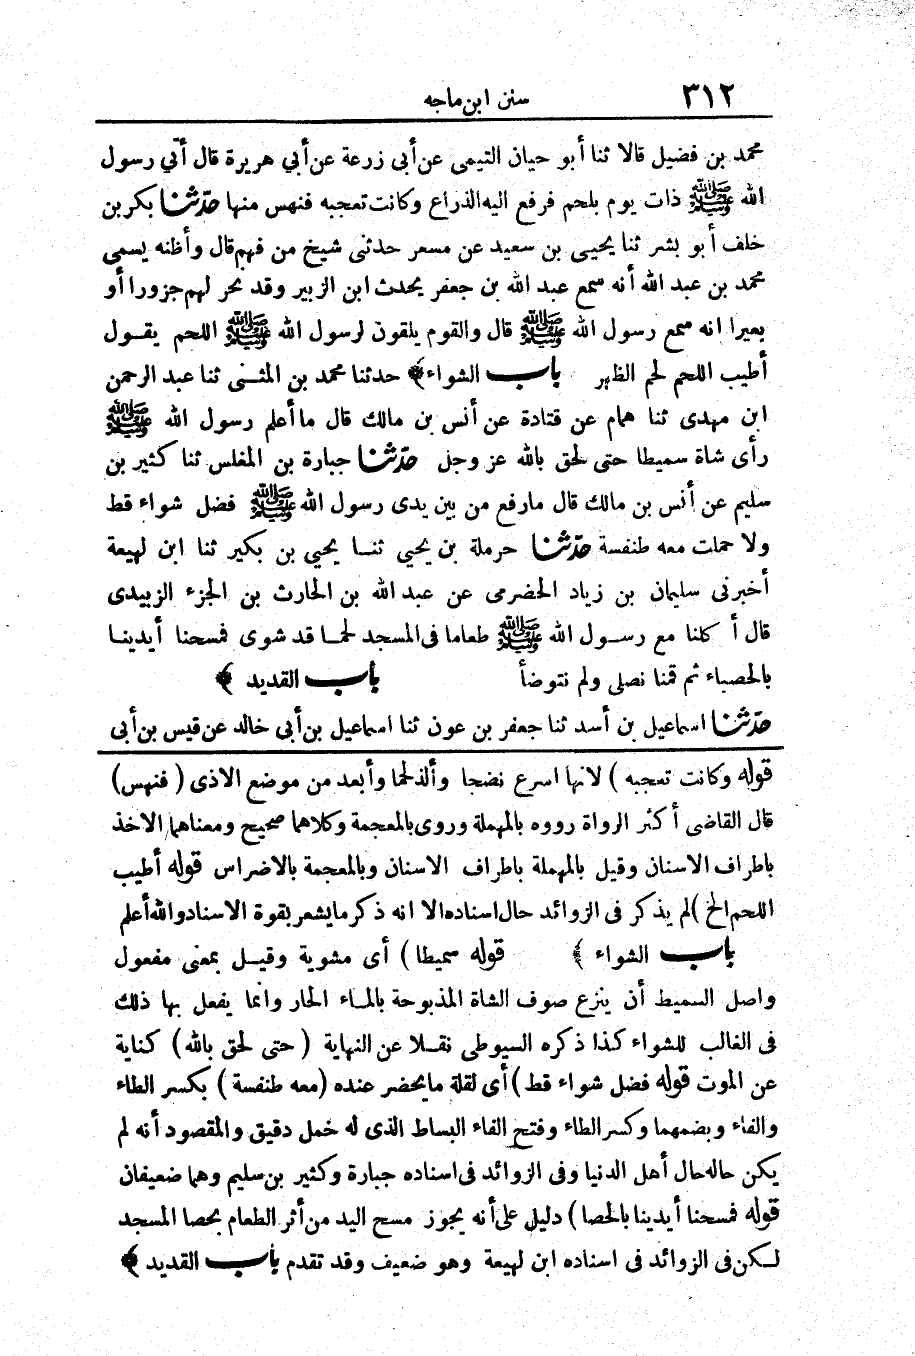 ٣١٢ سنن ابن ماجه
محمد بن فضيل قالا ثنا أبو حيان التيمى عن أبى زرعة عن أبي هريرة قال أتي رسول
الله ﷺ ذات يوم بلحم فرفع اليه الذراع وكانت تعجبه فنهس منها حدّثنا بكر بن
خلف أبو بشر ثنا يحيى بن سعيد عن مسعر حدثنى شيخ من فهم قال وأظنه يسمى
محمد بن عبد الله أنه سمع عبد الله بن جعفر يحدث ابن الزبير وقد نحر لهم جزورا أو
بعيرا انه سمع رسول الله ﷺ قال والقوم يلقون لرسول الله ﷺ اللحم يقول
أطيب اللحم لحم الظهر باب الشواء﴾ حدثنا محمد بن المثنى ثنا عبد الرحمن
ابن مهدى ثنا همام عن قتادة عن أنس بن مالك قال ما أعلم رسول الله ﷺ
رأى شاة سميطا حتى لحق بالله عز وجل حدّثنا جبارة بن المغلس ثنا كثير بن
سليم عن أنس بن مالك قال مارفع من بين يدى رسول الله ﷺ فضل شواء قط
ولا حملت معه طنفسة حدّثنا حرملة بن يحيي ثنا يحيي بن بكير ثنا ابن لهيعة
أخبرنى سليمان بن زياد الحضرمى عن عبد الله بن الحارث بن الجزء الزبيدى
قال أكلنا مع رسول الله ﷺ طعاما فى المسجد لحما قد شوى فمسحنا أيدينا
بالحصباء ثم قمنا نصلى ولم نتوضأ باب القديد ﴾
حدّثنا اسماعيل بن أسد ثنا جعفر بن عون ثنا اسماعيل بن أبي خالد عن قيس بن أبى
قوله وكانت تعجبه ) لانها اسرع نضجا وألذ لحما وأبعد من موضع الاذى ( فنهس)
قال القاضى أكثر الرواة رووه بالمهملة وروى بالمعجمة وكلاهما صحيح ومعناهما الاخذ
باطراف الاسنان وقيل بالمهملة باطراف الاسنان وبالمعجمة بالاضراس قوله أطيب
اللحم الخ )لم يذكر فى الزوائد حال اسناده الا انه ذكر مايشعر بقوة الاسناد والله أعلم
باب الشواء ﴾ قوله سميطا ) أى مشوية وقيل بمعنى مفعول
واصل السميط أن ينزع صوف الشاة المذبوحة بالماء الحار وانما يفعل بها ذلك
فى الغالب للشواء كذا ذكره السيوطى نقلا عن النهاية ( حتى لحق بالله ) كناية
عن الموت قوله فضل شواء قط )أى لقلة مايحضر عنده (معه طنفسة ) بكسر الطاء
والفاء وبضمهما وكسر الطاء وفتح الفاء البساط الذى له خمل دقيق والمقصود أنه لم
يكن حاله حال أهل الدنيا وفى الزوائد فى اسناده جبارة وكثير بن سليم وهما ضعيفان
قوله فمسحنا أيدينا بالحصا) دليل على أنه يجوز مسح اليد من أثر الطعام بحصا المسجد
لكن فى الزوائد فى اسناده ابن لهيعة وهو ضعيف وقد تقدم باب القديد ﴾